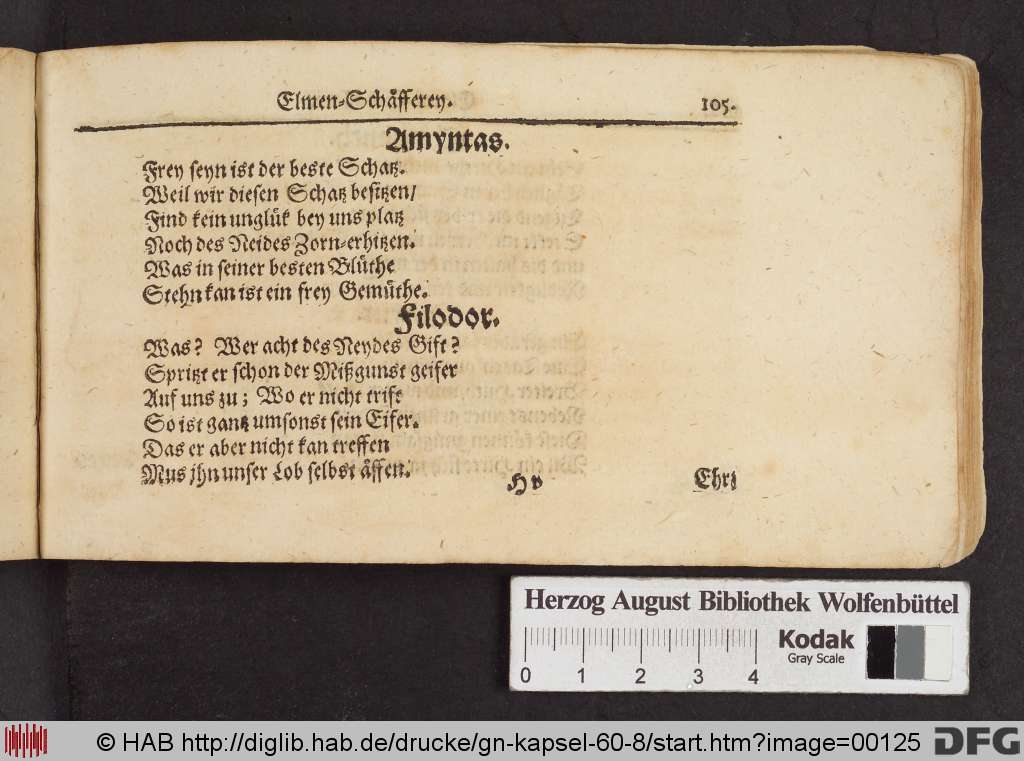 Elmen-Schäfferey. 105.
Amyntas.
Frey seyn ist der beste Schatz.
Weil wir diesen Schatz besitzen/
Find kein unglük bey uns platz
Noch des Neides Zorn-erhitzen.
Was in seiner besten Blüthe
Stehn kan ist ein frey Gemüthe.
Filodor.
Was? Wer acht des Neydes Gift?
Spritzt er schon der Mißgunst geifer
Auf uns zu; Wo er nicht trift
So ist gantz umsonst sein Eifer.
Das er aber nicht kan treffen
Mus jhn unser Lob selbst äffen.
H v Ehr;
Herzog August Bibliothek Wolfenbüttel
Kodak
Gray Scale
0 1 2 3 4
© HAB http://diglib.hab.de/drucke/gn-kapsel-60-8/start.htm?image=00125 DFG